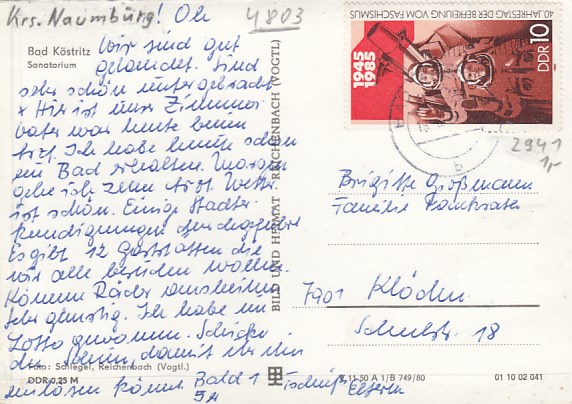 Krs. Naumburg! Ok
4803
Bad Köstritz
Sanatorium
Wir sind gut
gelandet. Sind
sehr schön untergebracht
x Hier ist unser Zimmer
war heute beim
Arzt. Ich habe heute schon
ein Bad erhalten. Morgen
gehe ich zum Arzt. Wetter
ist schön. Einige Stadter-
kundigungen durchgeführt
Es gibt 12 Gaststätten die
wir alle wollen.
Können Räder ausleihen
Sehr günstig. Ich habe im
Lotto gewonnen. Schicke
den Schein, damit ihr ihn
einlösen könnt. Bald
Tschüß Eltern
Foto: Schlegel, Reichenbach (Vogtl.)
DDR 0,25 M
BILD UND HEIMAT REICHENBACH (VOGTL)
V 11 50 A 1/B 749/80
01 10 02 041
40. JAHRESTAG DER BEFREIUNG VOM FASCHISMUS
1945
1985
DDR 10
b
2941
1,-
Brigitte Großmann
Familie
7901 Klöden
Schulstr. 18